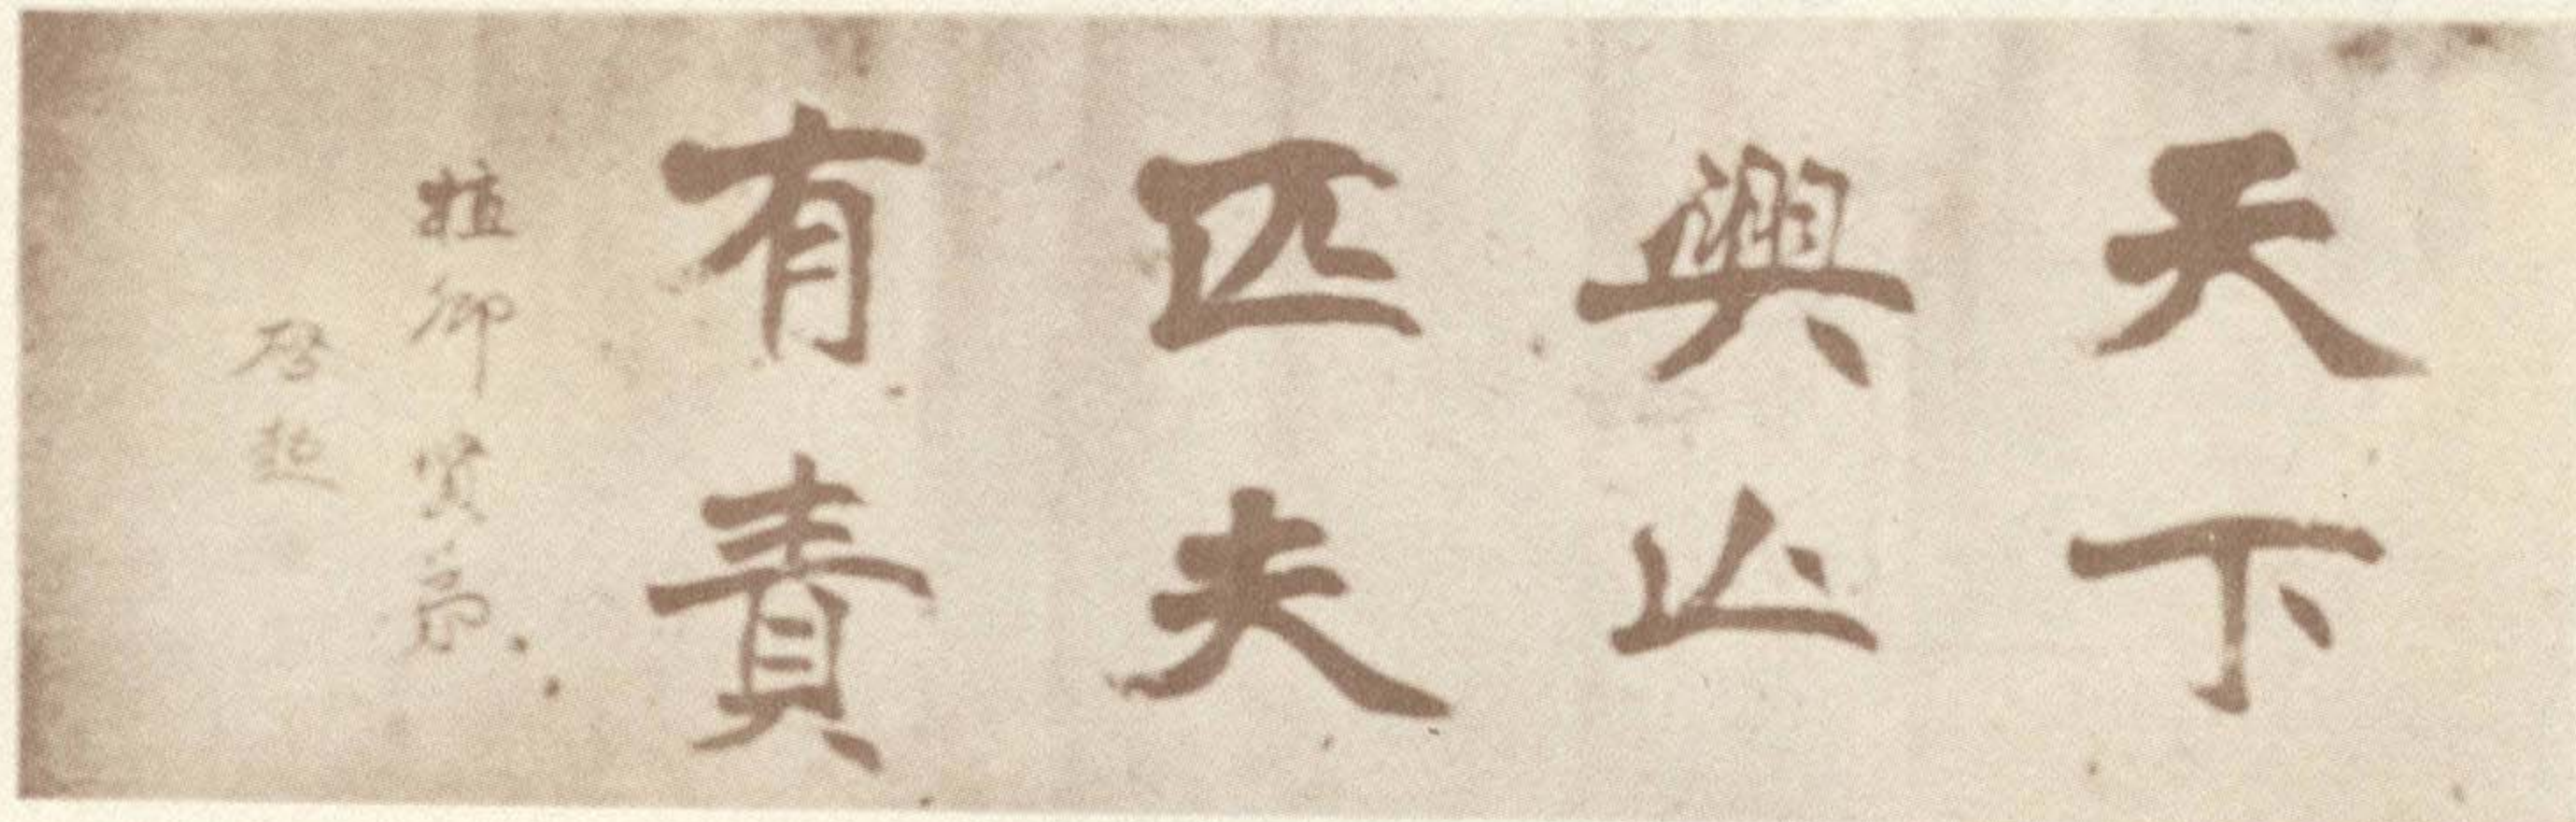 天下
興亾
匹夫
有責
植卿賢弟
啓超